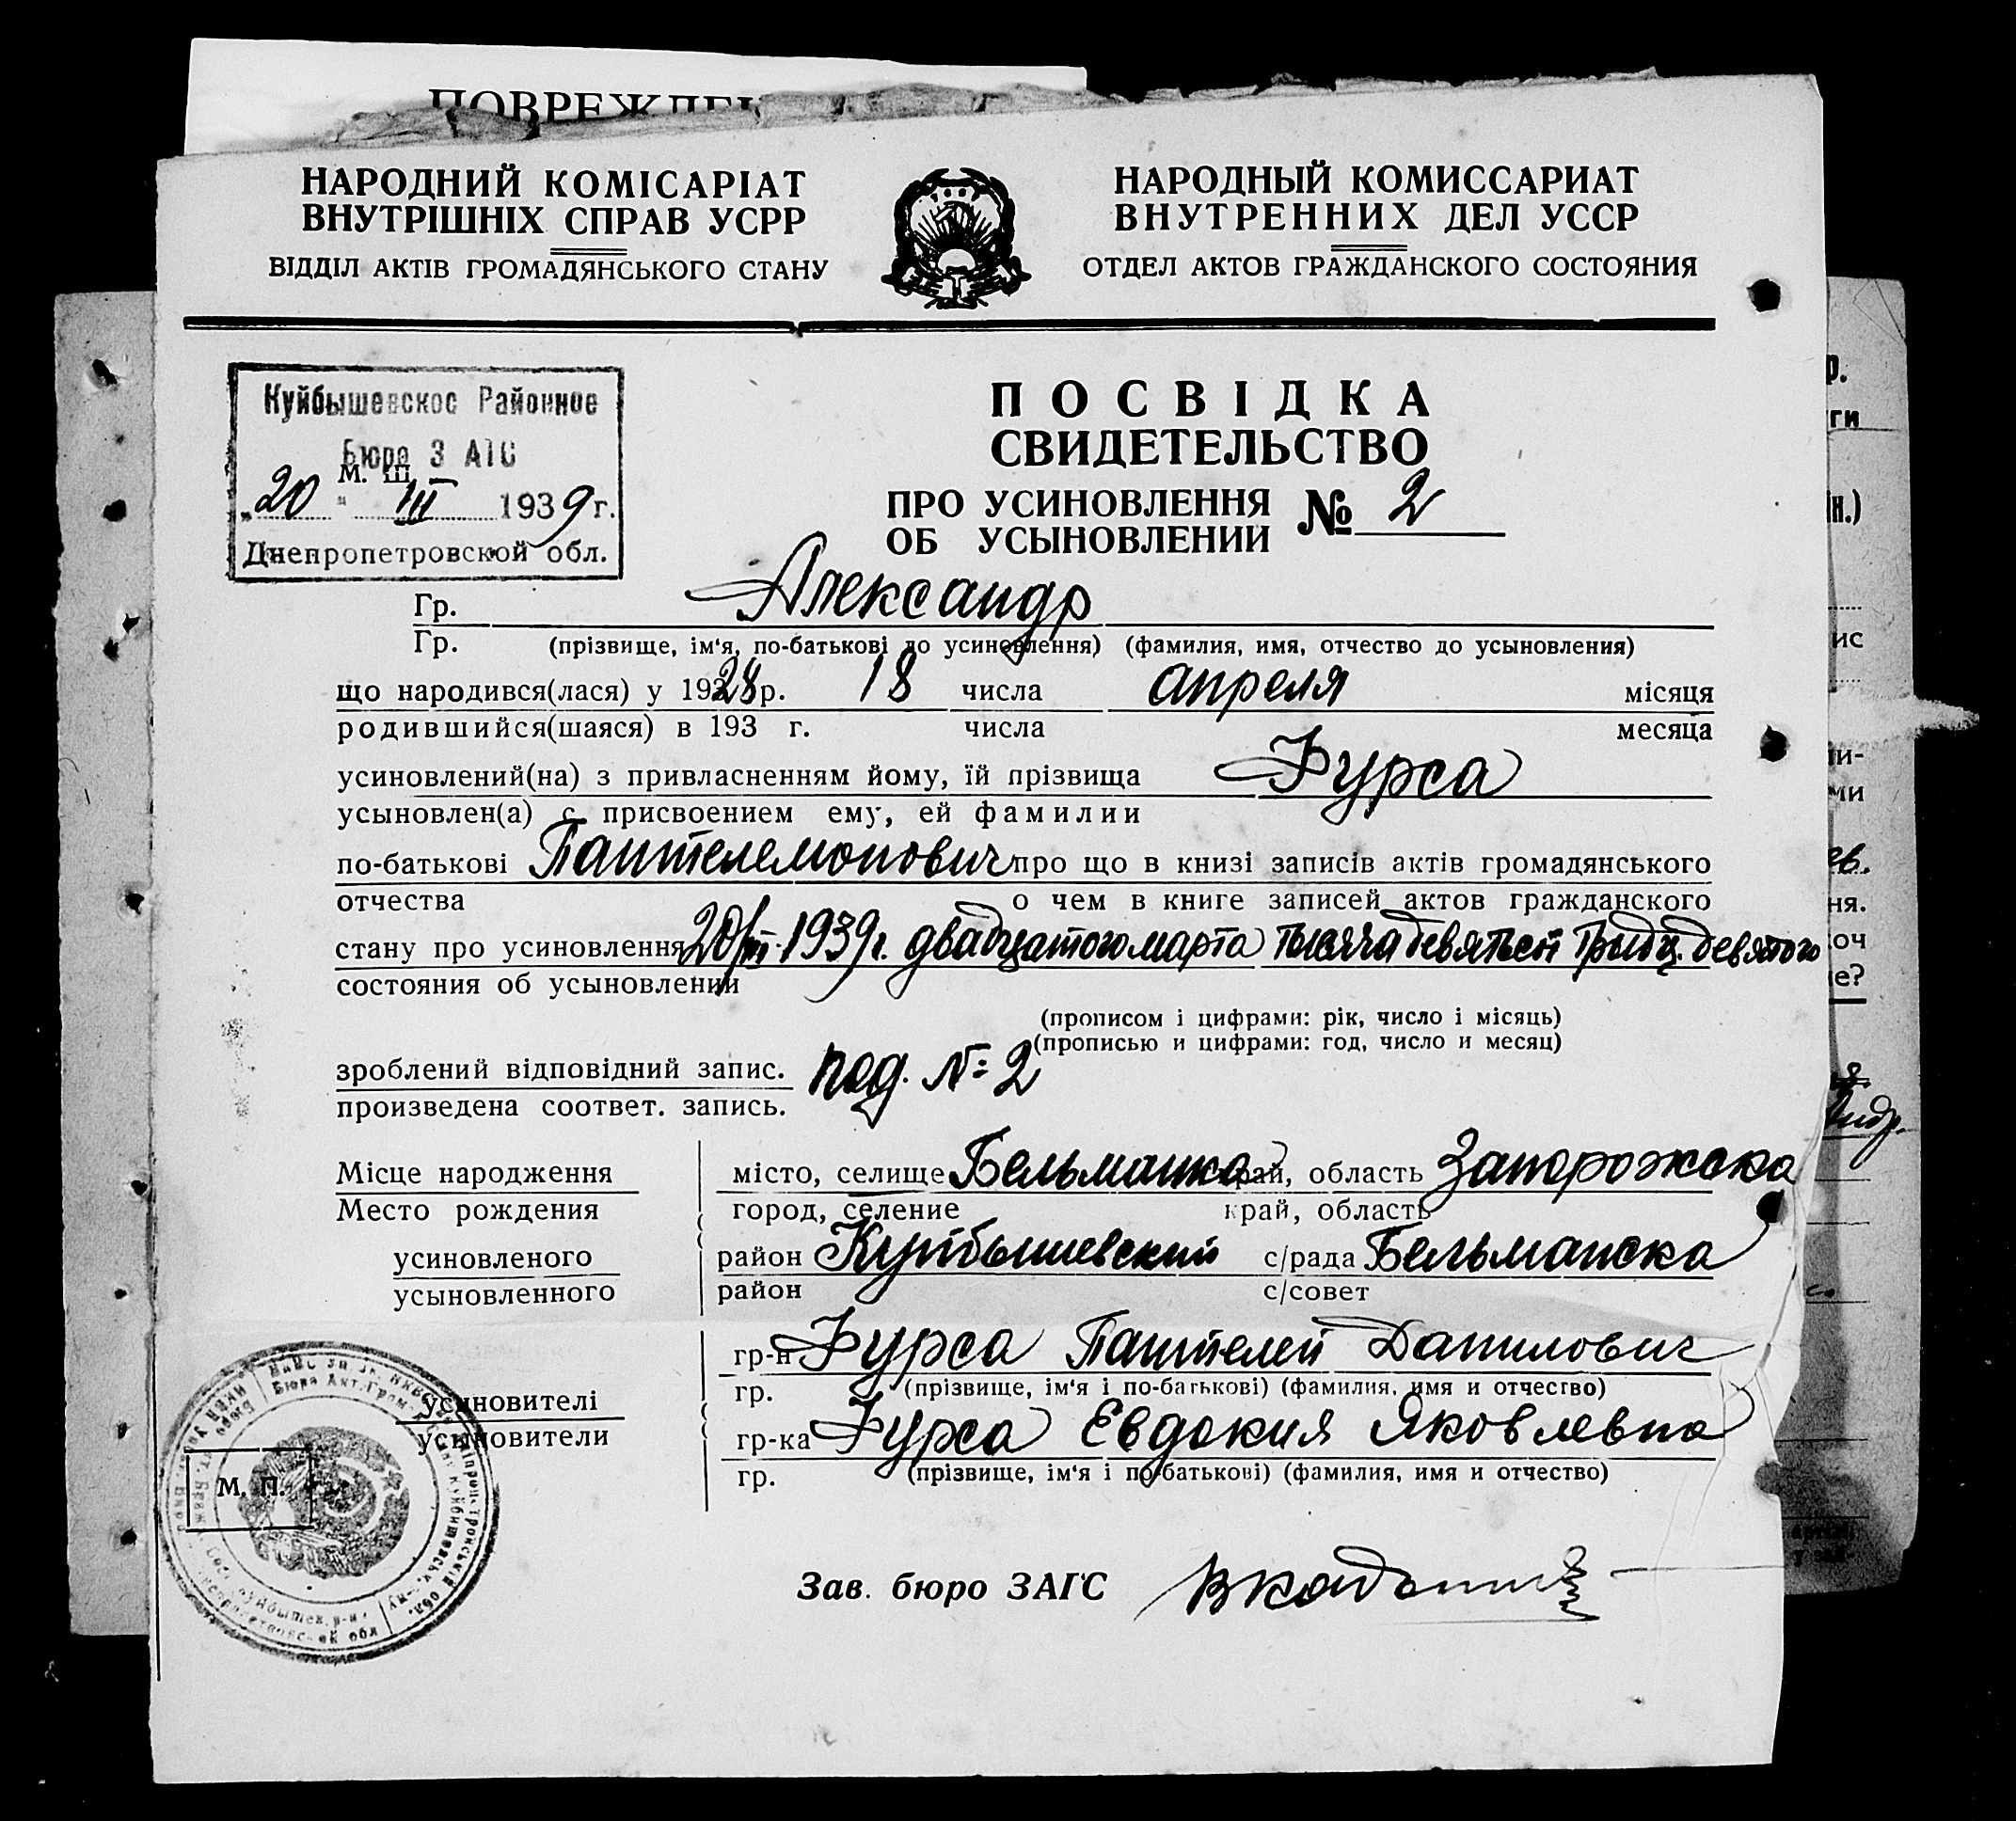 ПОВРЕЖДЕН
НАРОДНИЙ КОМІСАРІАТ
ВНУТРІШНІХ СПРАВ УСРР
ВІДДІЛ АКТІВ ГРОМАДЯНСЬКОГО СТАНУ
НАРОДНЫЙ КОМИССАРИАТ
ВНУТРЕННИХ ДЕЛ УССР
ОТДЕЛ АКТОВ ГРАЖДАНСКОГО СОСТОЯНИЯ
Куйбышевское Районное
Бюро ЗАГС
М. Ш.
„20" III 1939 г.
Днепропетровской обл.
ПОСВІДКА
СВИДЕТЕЛЬСТВО
ПРО УСИНОВЛЕННЯ
ОБ УСЫНОВЛЕНИИ № 2
Гр. Александр
Гр. (прізвище, ім'я, по-батькові до усиновлення) (фамилия, имя, отчество до усыновления)
що народився(лася) у 1928 р. 18 числа апреля місяця
родившийся(шаяся) в 193 г. числа месяца
усиновлений(на) з привласненням йому, їй прізвища Фурса
усыновлен(а) с присвоением ему, ей фамилии
по-батькові Пантелемонович про що в книзі записів актів громадянського
отчества о чем в книге записей актов гражданского
стану про усиновлення 20/III. 1939 г. двадцатого марта тысяча девятьсот тридц. девятого
состояния об усыновлении
(прописом і цифрами: рік, число і місяць)
(прописью и цифрами: год, число и месяц)
зроблений відповідний запис. под. № 2
произведена соответ. запись.
Місце народження місто, селище Бельманка край, область Запорожска
Место рождения город, селение край, область
усиновленого район Куйбышевский с/рада Бельманска
усыновленного район с/совет
гр-н Фурса Пантелей Данилович
гр. (прізвище, ім'я і по-батькові) (фамилия, имя и отчество)
усиновителі
усыновители гр-ка Фурса Евдокия Яковлевна
гр. (прізвище, ім'я і по-батькові) (фамилия, имя и отчество)
М. П.
Зав. бюро ЗАГС